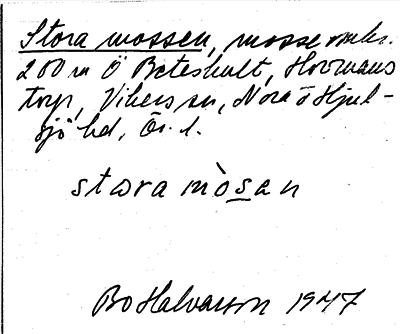 Stora mossen, mosse omkr.
200 m Ö Beteshult, Hovmans
torp, Vikers sn, Nora o Hjul-
sjö hd, Ör. l.
stora mòsan
Bo Halvarson 1947